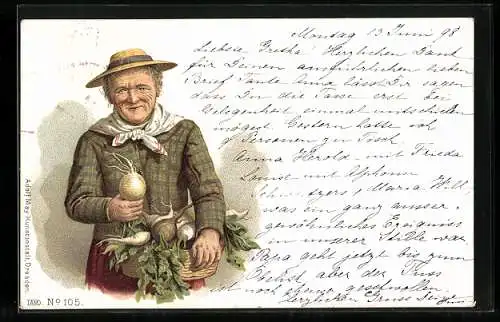 Montag 13 Juni 98
Liebste Grethe! Herzlichen Dank
für Deinen ausführlichen lieben
Brief Tante Anna lässt Dir sagen
dass Du die Tasse erst bei
Gelegenheit einmal mitschicken
mögest. Gestern hatte ich
9 Personen zu Tisch
Anna Herold mit Frieda
Louis mit Alphons
Schweizers, Maria Will,
was ein ganz ausser-
gewöhnliches Ereigniss
in unserer Stille war
Papa geht jetzt bis zum
Herbst aber der Fuss
ist noch immer geschwollen
Herzlichen Gruss Deine
Adolf May, Kunstanstalt, Dresden
No 105.